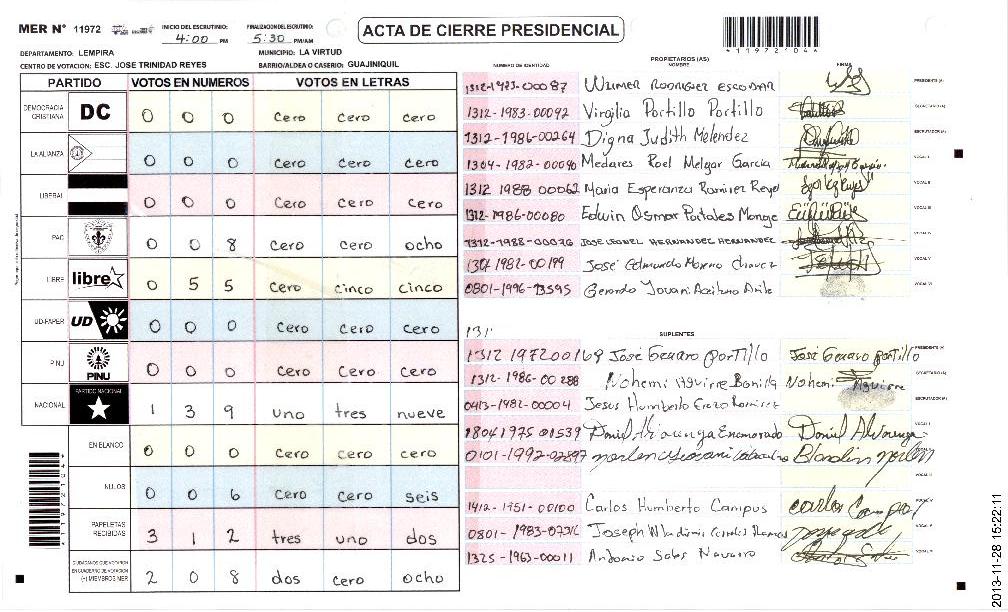 MER N° 11972
INICIO DEL ESCRUTINIO: 4:00 PM
FINALIZACIÓN DEL ESCRUTINIO: 5:30 PM/AM
ACTA DE CIERRE PRESIDENCIAL
*119721044
DEPARTAMENTO: LEMPIRA
MUNICIPIO: LA VIRTUD
CENTRO DE VOTACION: ESC. JOSE TRINIDAD REYES
BARRIO/ALDEA O CASERIO: GUAJINIQUIL
PARTIDO VOTOS EN NUMEROS VOTOS EN LETRAS
DEMOCRACIA CRISTIANA DC 0 0 0 cero cero cero
LA ALIANZA 0 0 0 cero cero cero
LIBERAL 0 0 0 cero cero cero
PAC 0 0 8 cero cero ocho
LIBRE libre 0 5 5 cero cinco cinco
UD-FAPER UD 0 0 0 cero cero cero
PINU PINU 0 0 0 cero cero cero
NACIONAL PARTIDO NACIONAL 1 3 9 uno tres nueve
EN BLANCO 0 0 0 cero cero cero
NULOS 0 0 6 cero cero seis
PAPELETAS RECIBIDAS 3 1 2 tres uno dos
CIUDADANOS QUE VOTARON EN CUADERNO DE VOTACION (+) MIEMBROS MER 2 0 8 dos cero ocho
PROPIETARIOS (AS)
NUMERO DE IDENTIDAD NOMBRE FIRMA
1312-1983-00087 Wilmer Rodriguez Escobar PRESIDENTE (A)
1312-1983-00092 Virgilia Portillo Portillo SECRETARIO (A)
1312-1986-00264 Digna Judith Melendez ESCRUTADOR (A)
1304-1982-00090 Medares Roel Melgar Garcia VOCAL I
1312 1988 00062 Maria Esperanza Ramirez Reyes VOCAL II
1312-1986-00080 Edwin Osmar Portales Monge VOCAL III
1312-1988-00036 JOSE LEONEL HERNANDEZ HERNANDEZ
1301 1982-00199 José Edmundo Moreno Chavez VOCAL V
0801-1996-13595 Gerardo Jovani VOCAL VI
131
SUPLENTES
1312 1972 00169 José Genaro portillo José Genaro portillo PRESIDENTE (A)
1312-1986-00288 Nohemi Aguirre Bonilla Nohemi Aguirre SECRETARIO (A)
0413-1982-00004 Jesus Humberto Erazo Ramirez ESCRUTADOR (A)
1804 1975 01539 Daniel Alvarenga Enamorado Daniel Alvarenga VOCAL I
0101-1992-02897
1412-1951-00100 Carlos Humberto Campos carlos Campos
0801-1983-02316 Joseph Wladimir
1325-1963-00011 Antonio Sales Navarro
2013-11-28 15:22:11